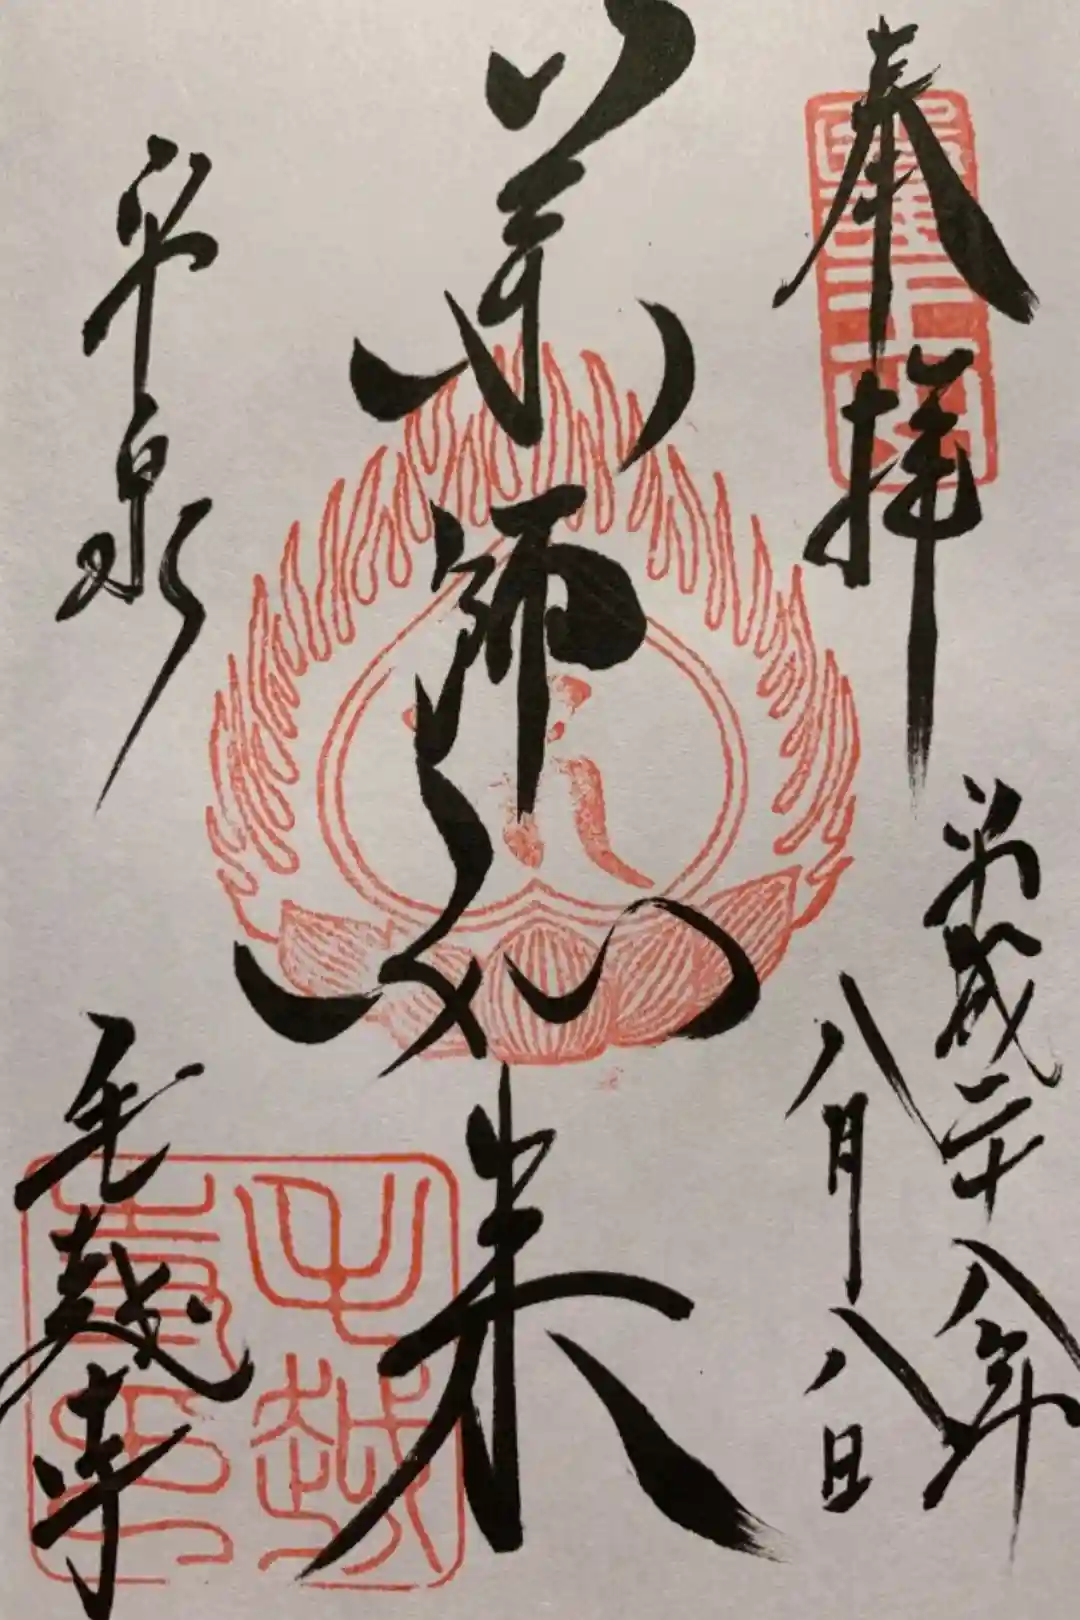 奉拝
平成二十八年
八月八日
薬師如来
平泉
毛越寺
毛越
寺印